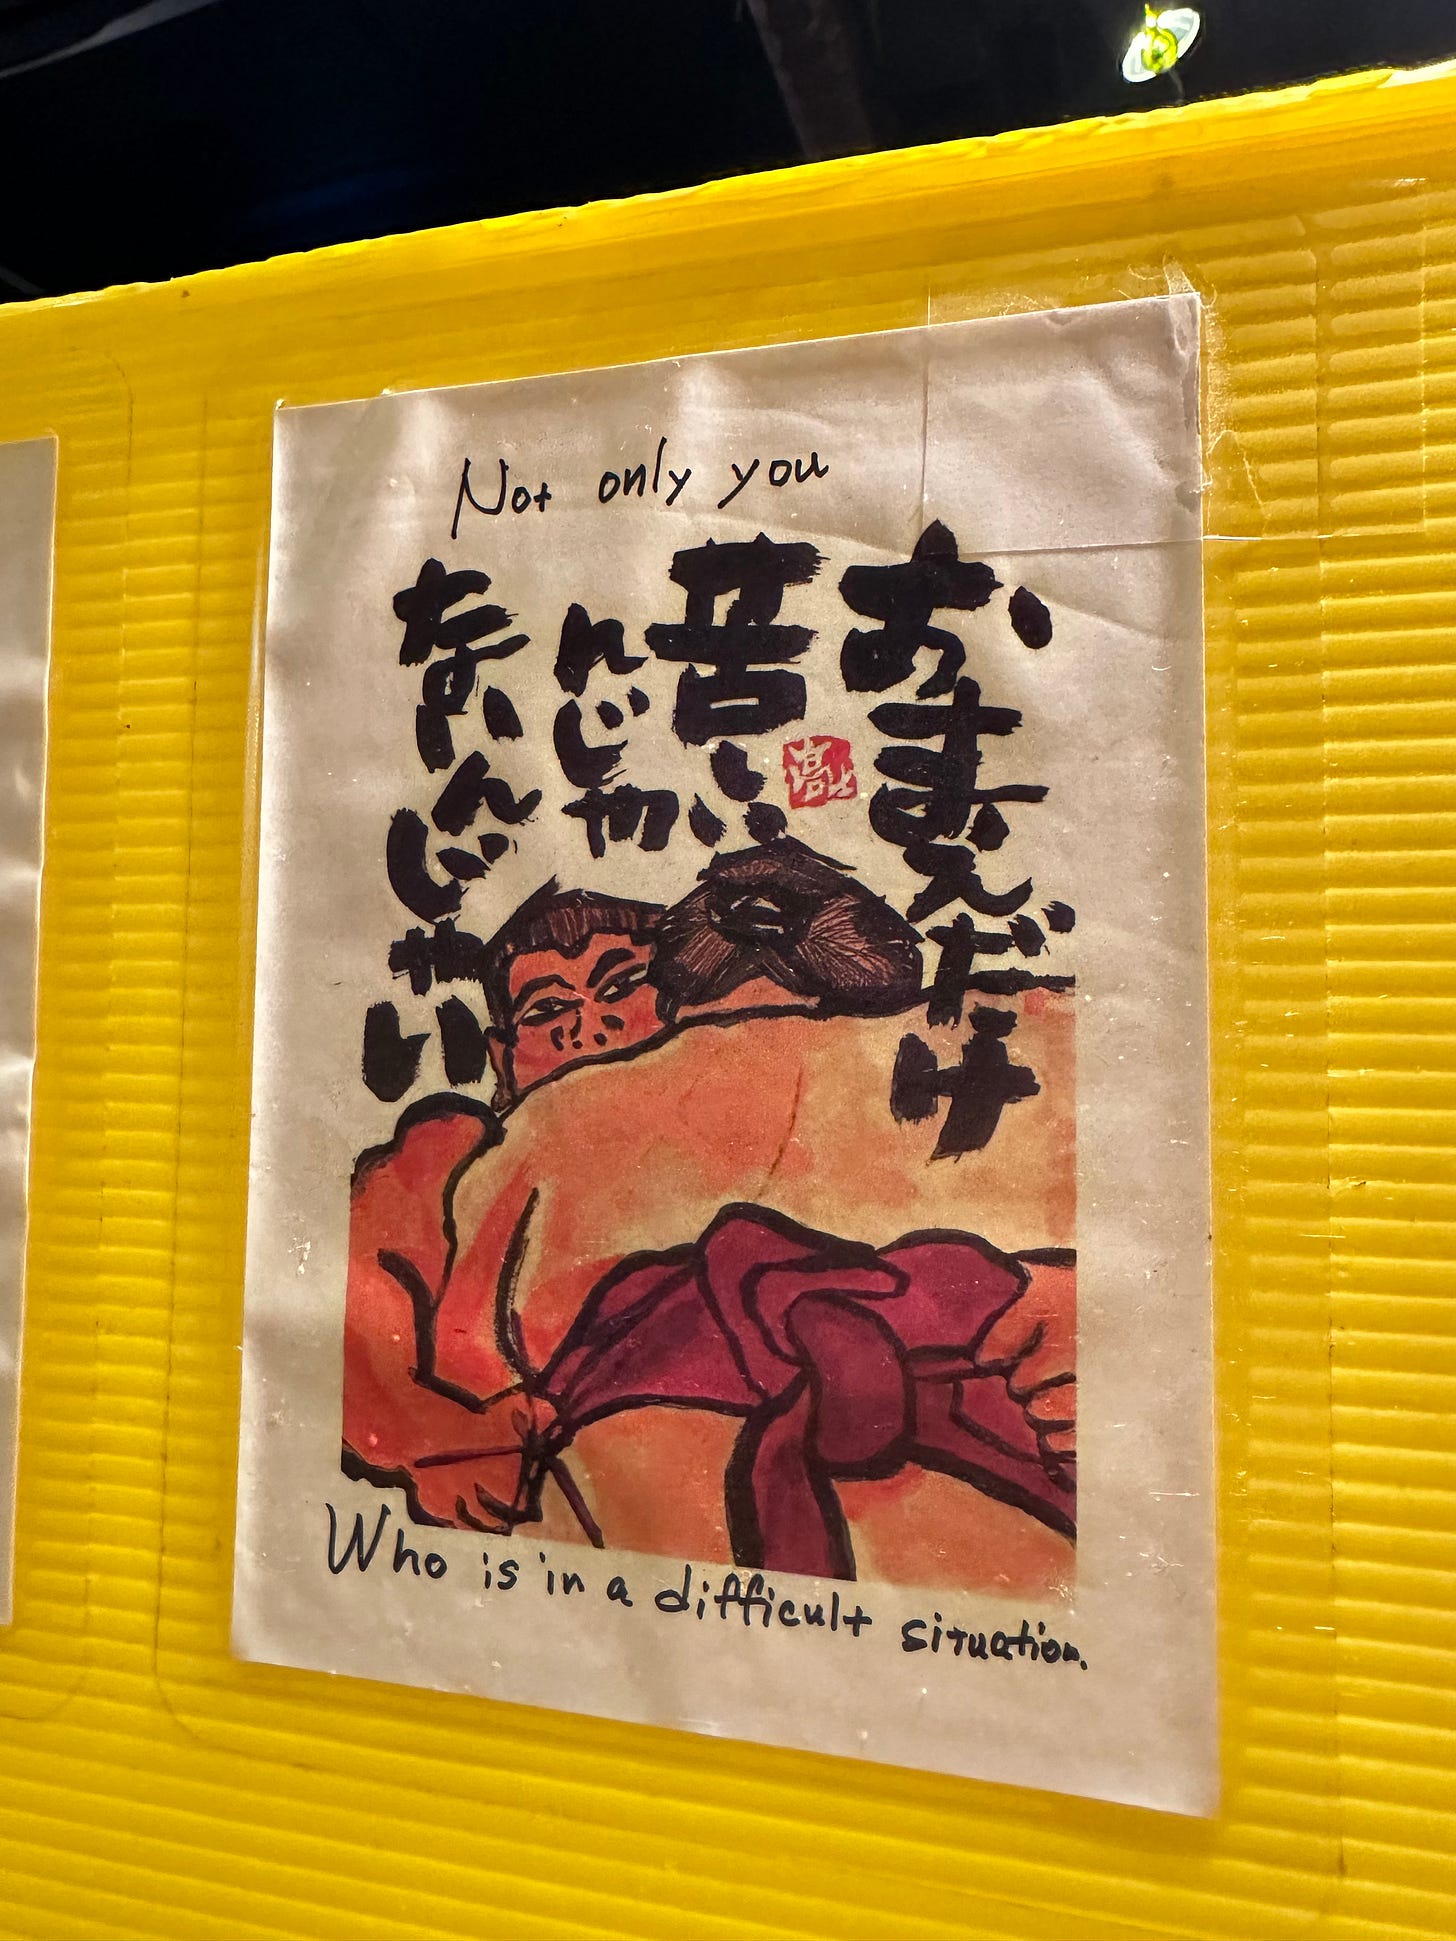 Not only you
おまえだけ
苦しい
んじゃ
ないんじゃい
Who is in a difficult situation.